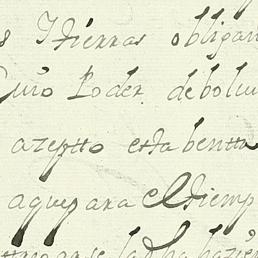 s Ytierras obligan
Cuio Poder debolu
azeptto esta bentta
aquepara el tiemp